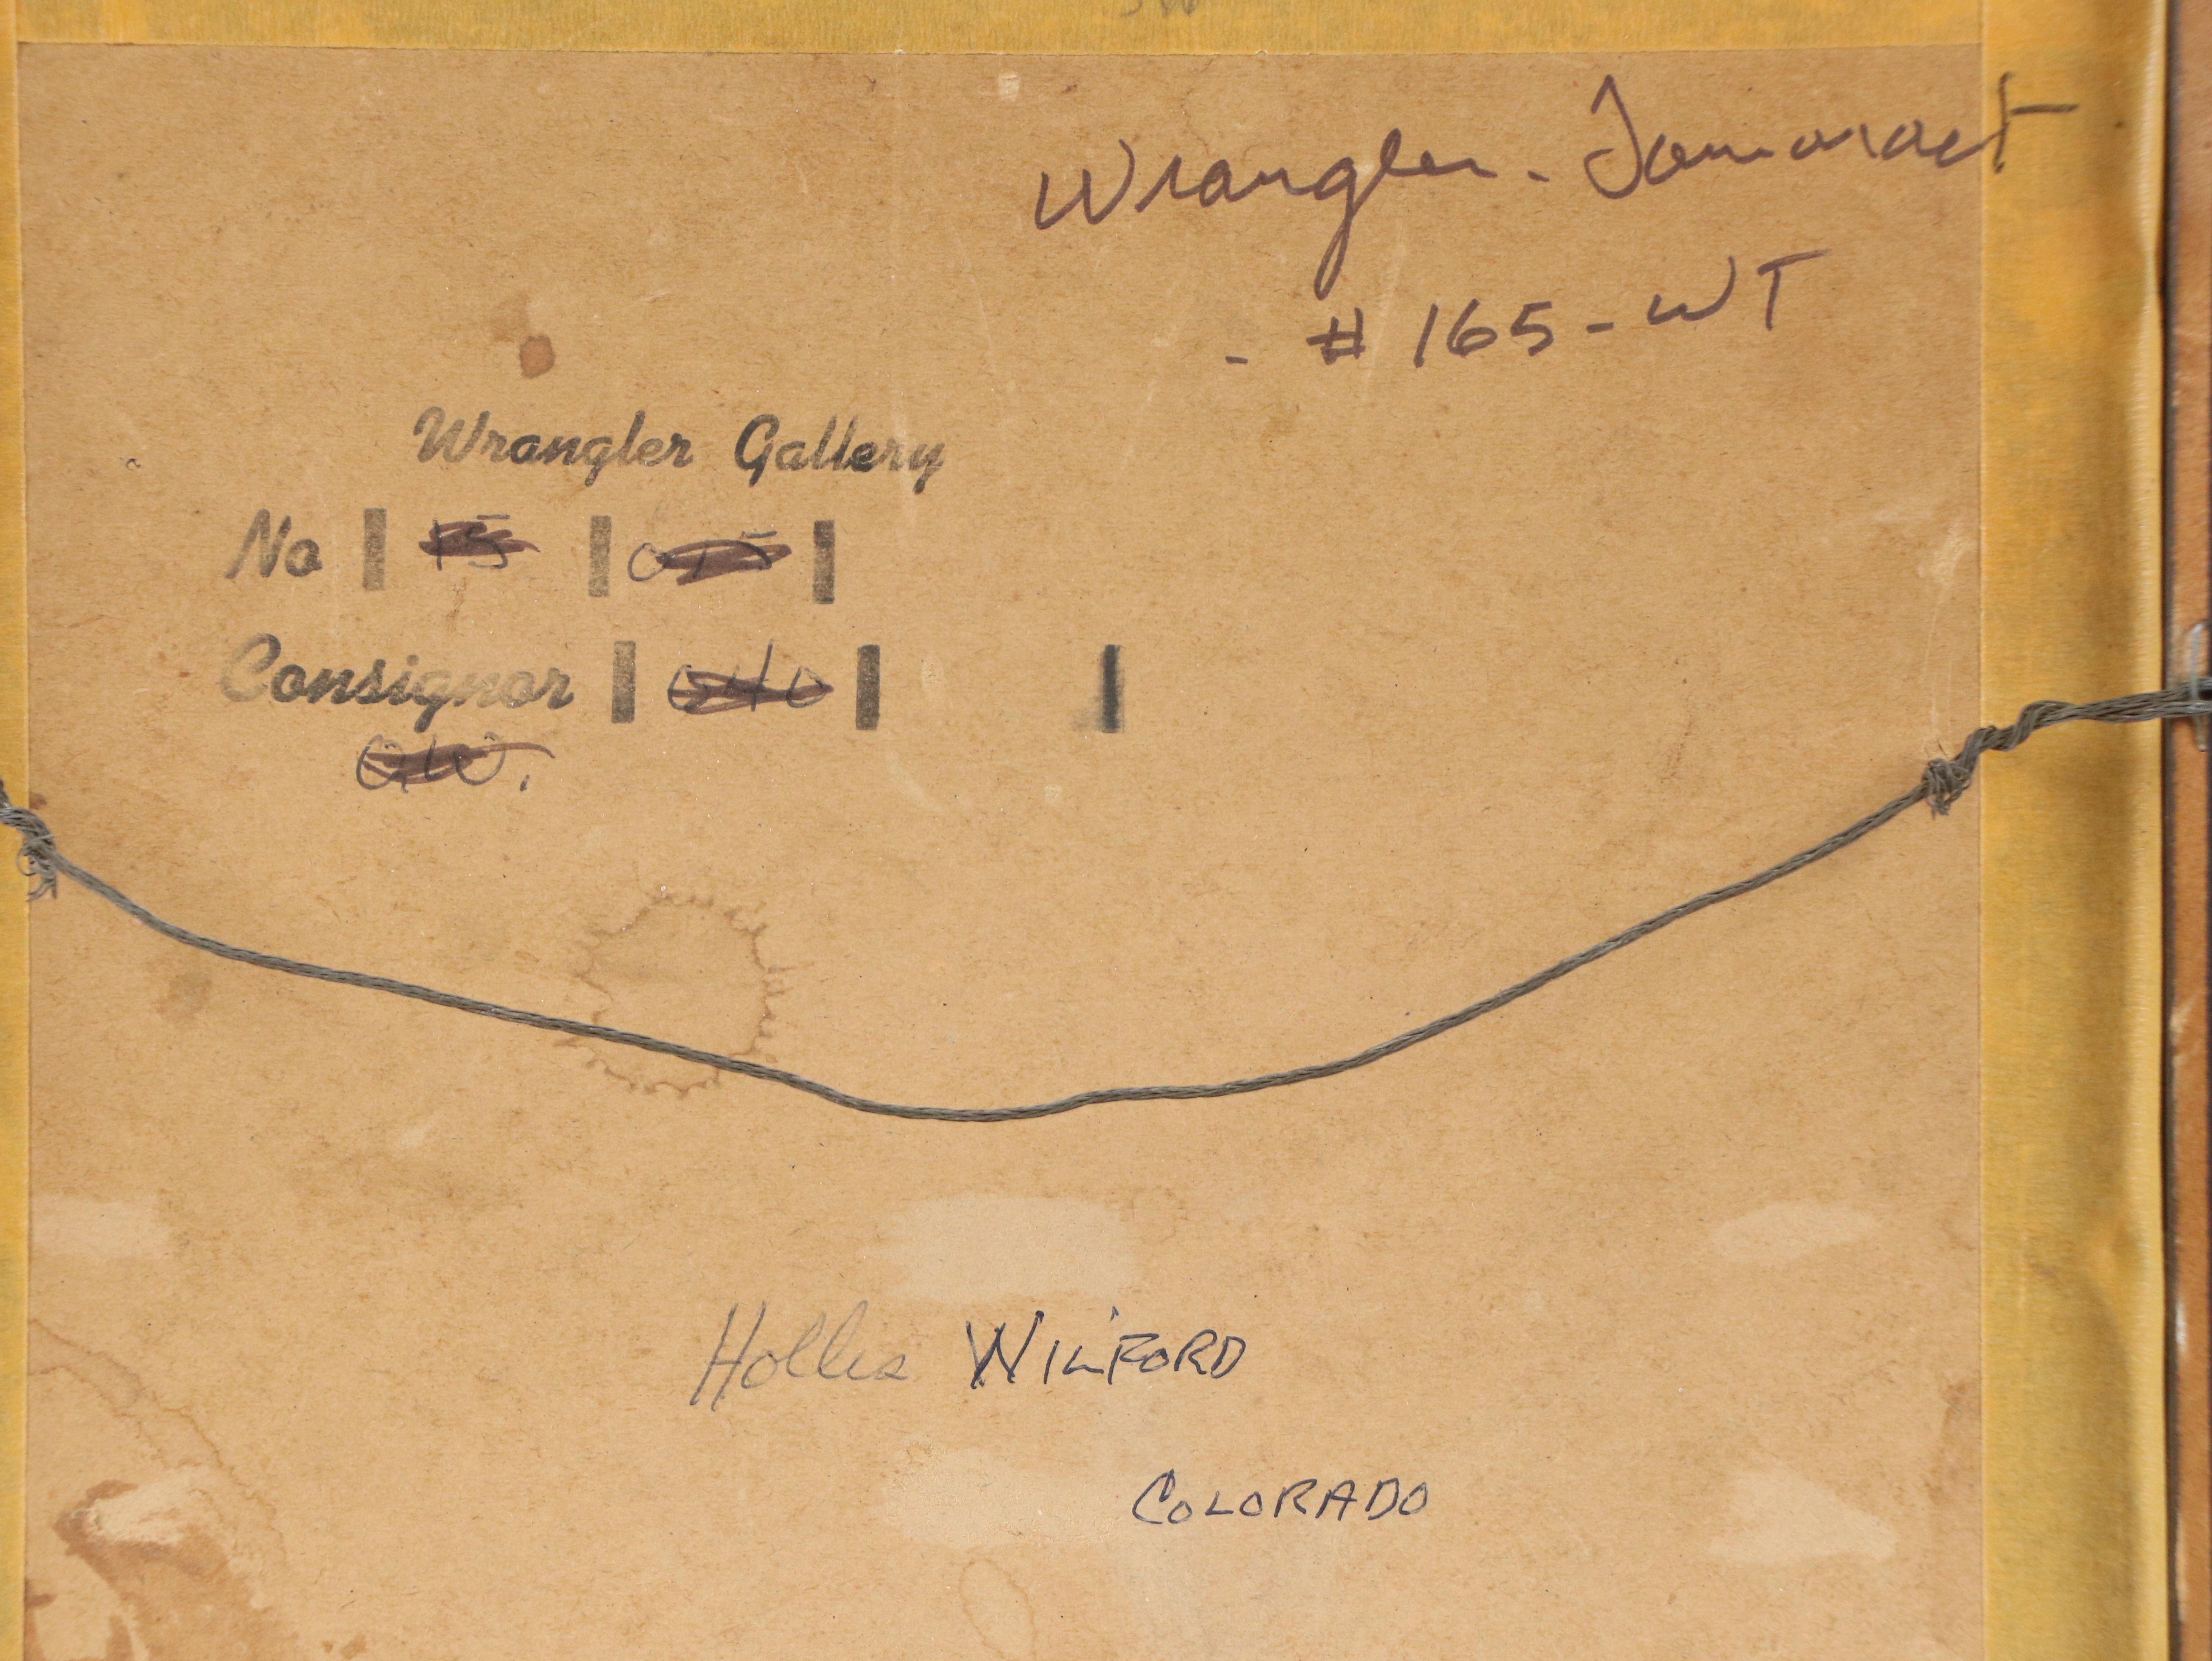 Wrangler - Tamaract
- # 165 - WT
Wrangler Gallery
No | 15 | 015 |
Consignor | 040 | |
Hollis WILFORD
COLORADO